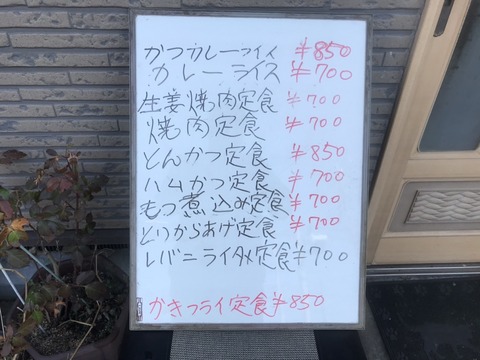 かつカレーライス ¥850
カレーライス ¥700
生姜焼肉定食 ¥700
焼肉定食 ¥700
とんかつ定食 ¥850
ハムかつ定食 ¥700
もつ煮込み定食 ¥700
とりからあげ定食 ¥700
レバニライタメ定食 ¥700
かきフライ定食 ¥850